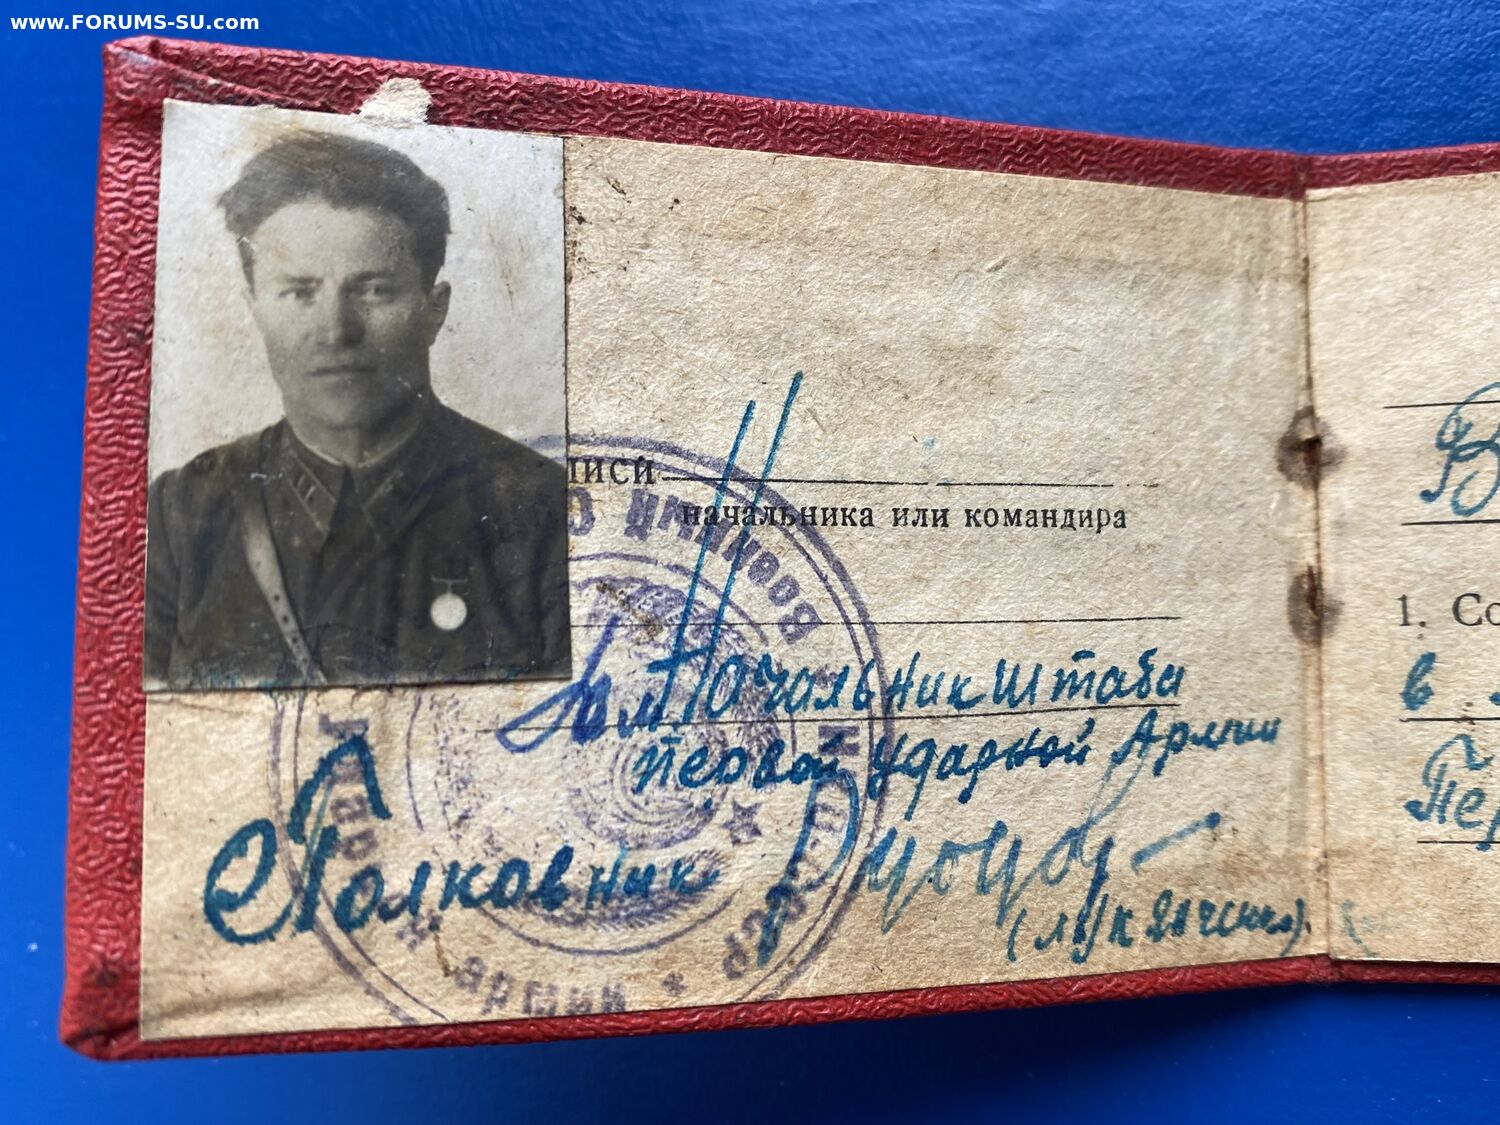 www.FORUMS-SU.com
писи
начальника или командира
Начальник штаба
первой ударной Армии
Полковник
(Лукьянченко).
Военный
армии • СССР
1. Со
в
Пер